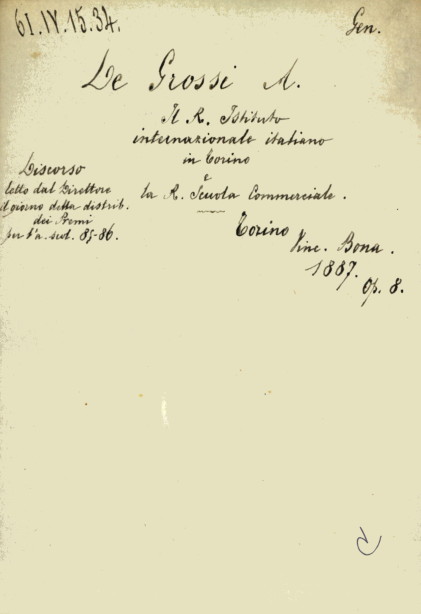 61.IV.15.34.
Gen.
De Grossi A.
Il R. Istituto
internazionale italiano
in Torino
e
la R. Scuola Commerciale.
Discorso
letto dal Direttore
il giorno della distrib.
dei Premi
per l'a. scol. 85-86.
Torino
Vinc. Bona.
1887.
Op. 8.